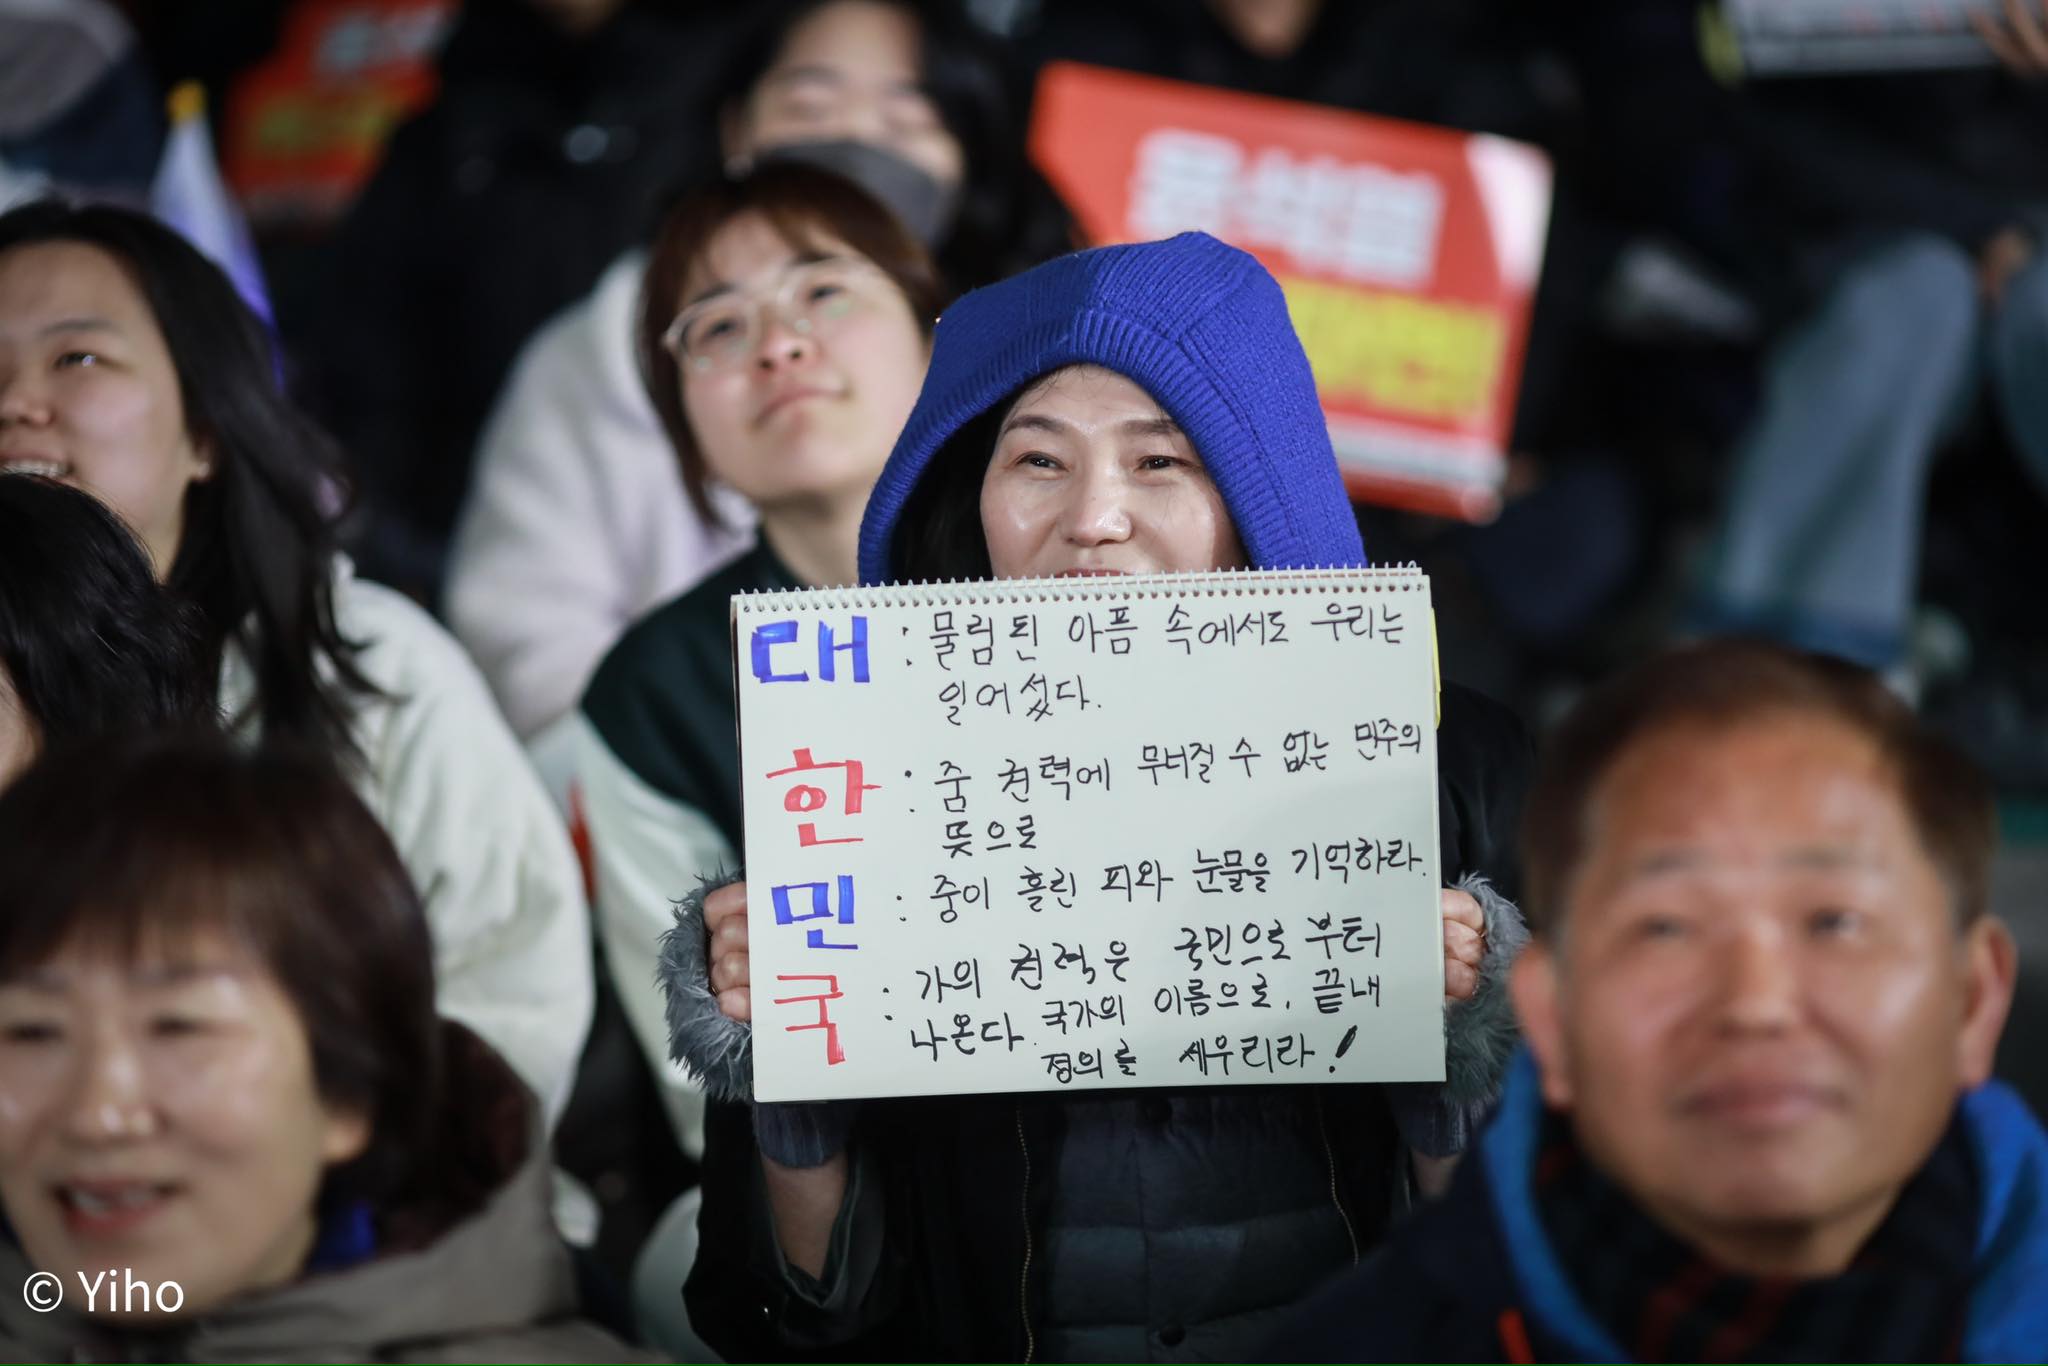 대 : 물림된 아픔 속에서도 우리는
일어섰다.
한 : 줌 권력에 무너질 수 없는 민주의
뜻으로
민 : 중이 흘린 피와 눈물을 기억하라.
국 : 가의 권력은 국민으로부터
나온다. 국가의 이름으로, 끝내
정의를 세우리라!
윤석열
© Yiho